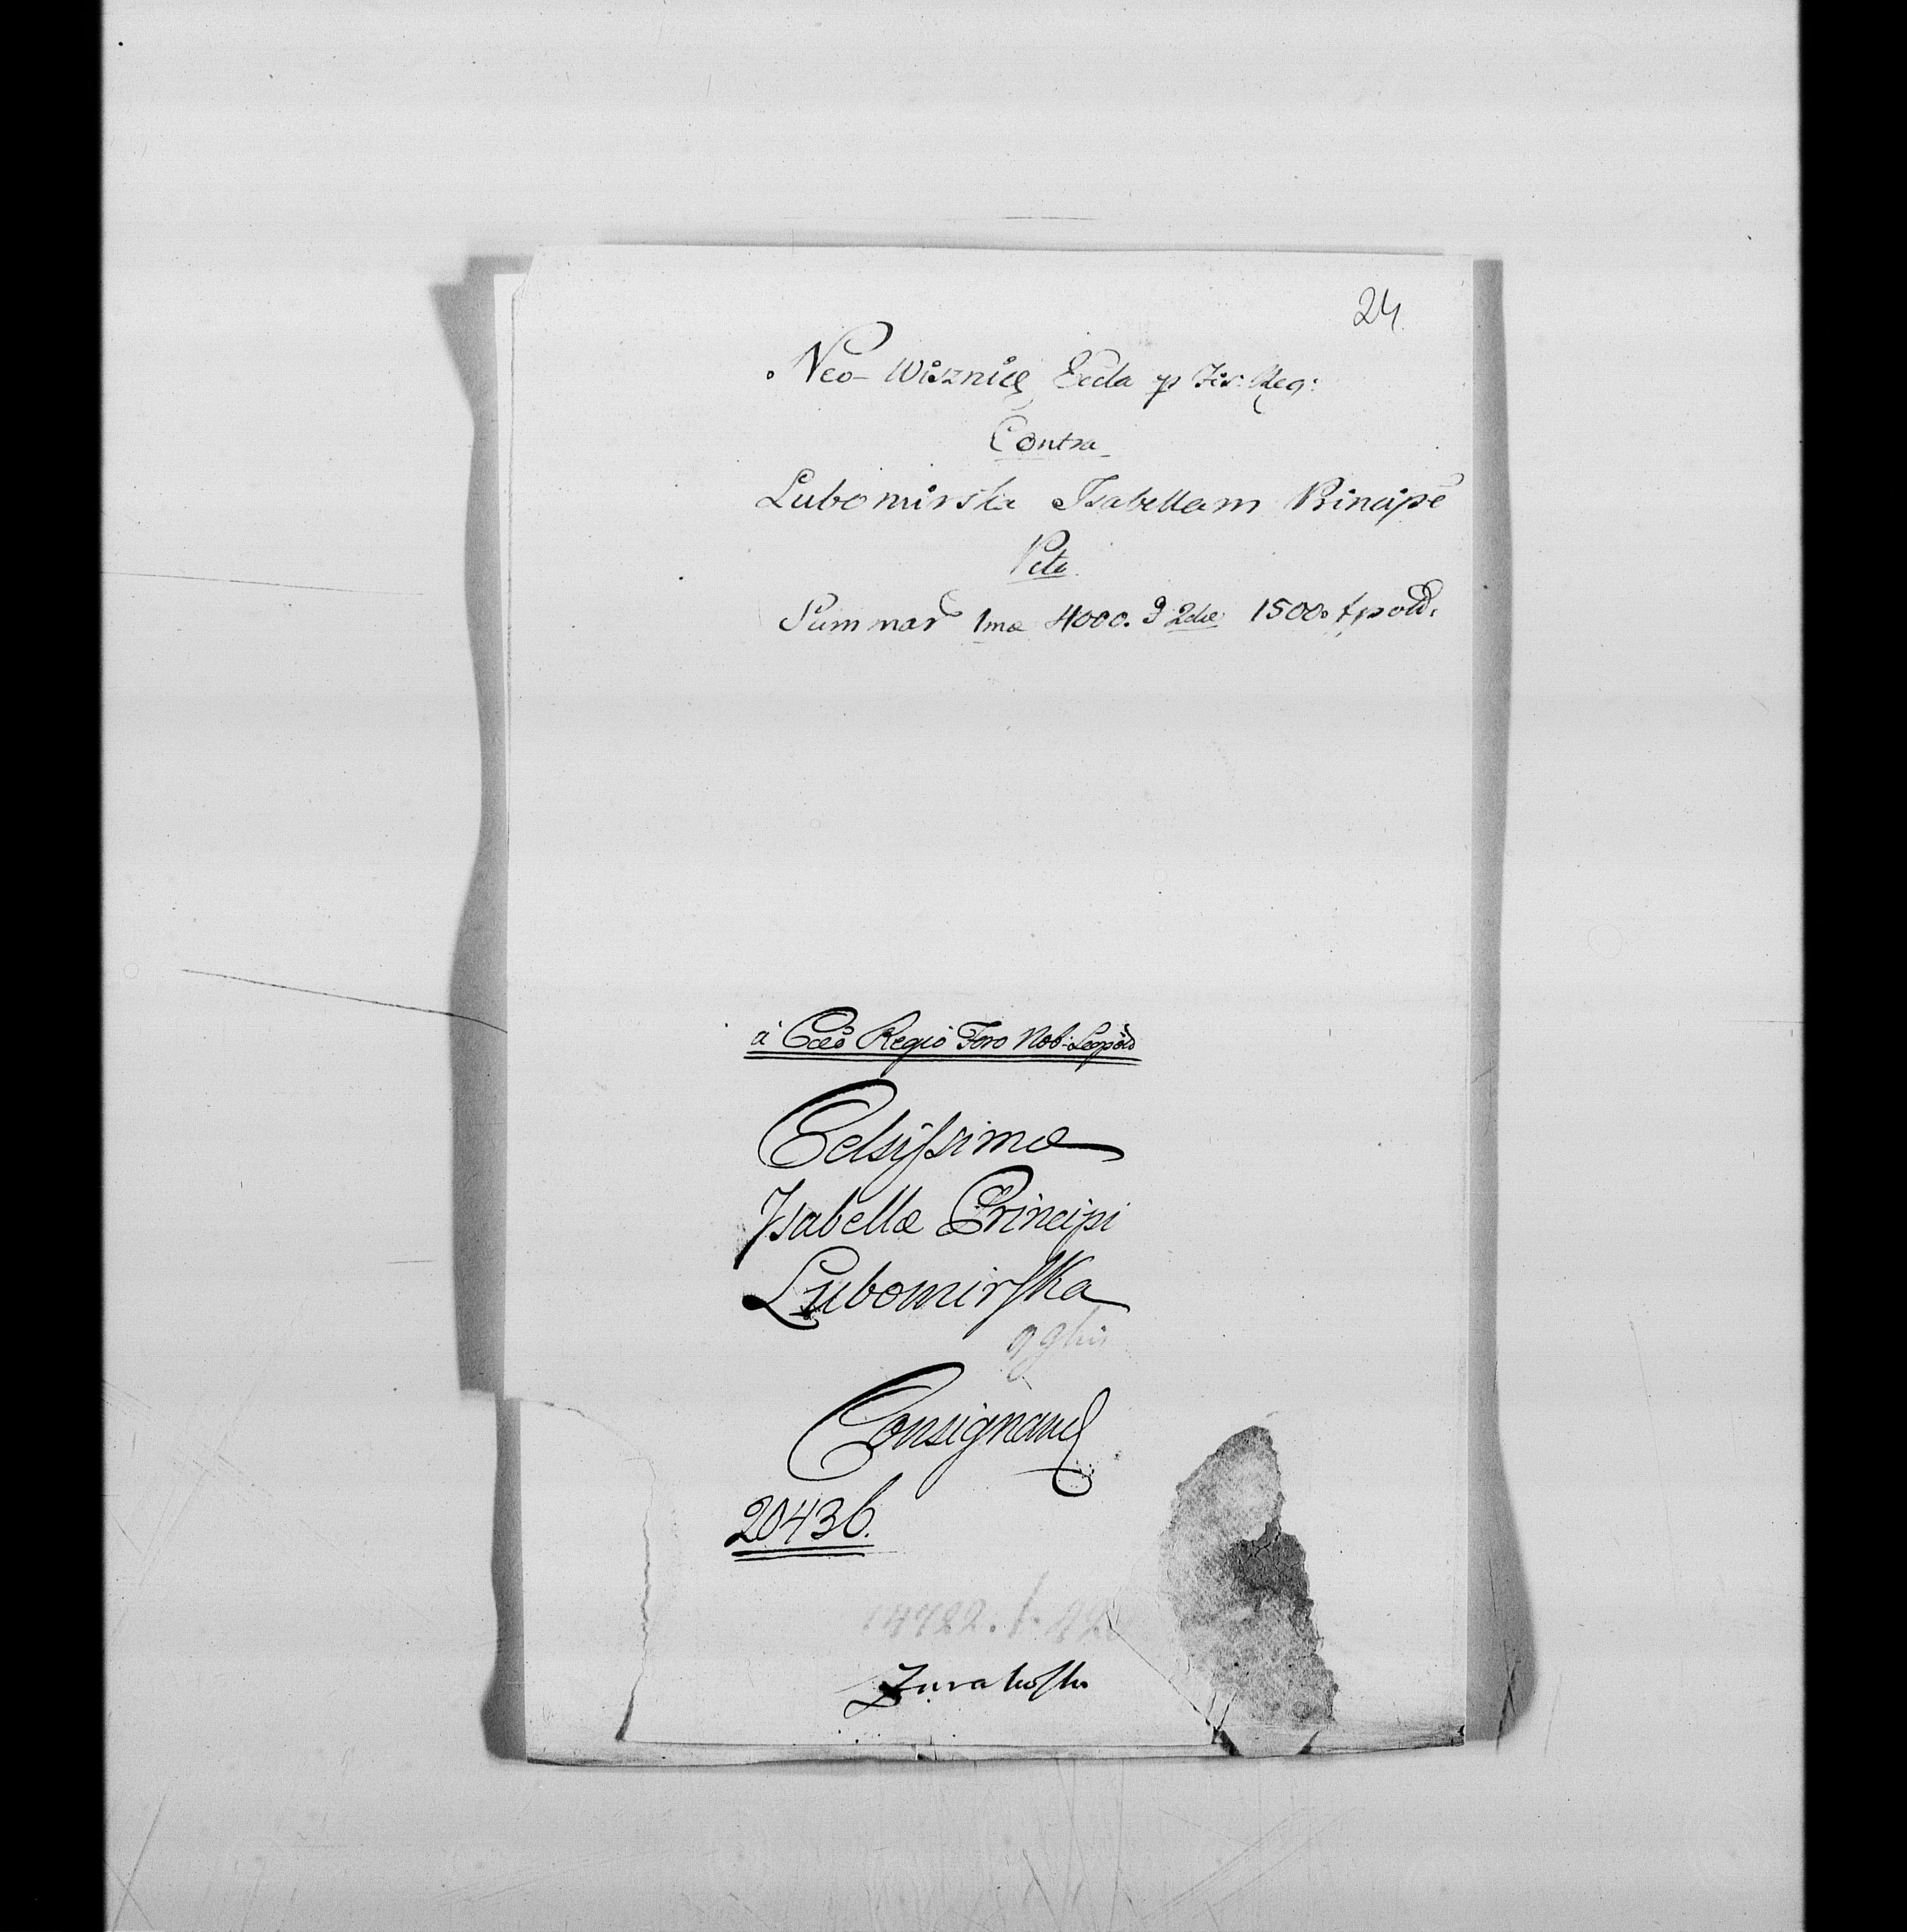 24
Neo-Wiśznice Eccla p Fis: Reg:
Contra
Lubomirska Isabellam Principē
Pcto
Summar 1mæ 4000. & 2dæ 1500.
à Cæo Regio Foro Nob: Leopold
Celsissimæ
Isabellæ Principi
Lubomirska
Consignand
20436.
14722.